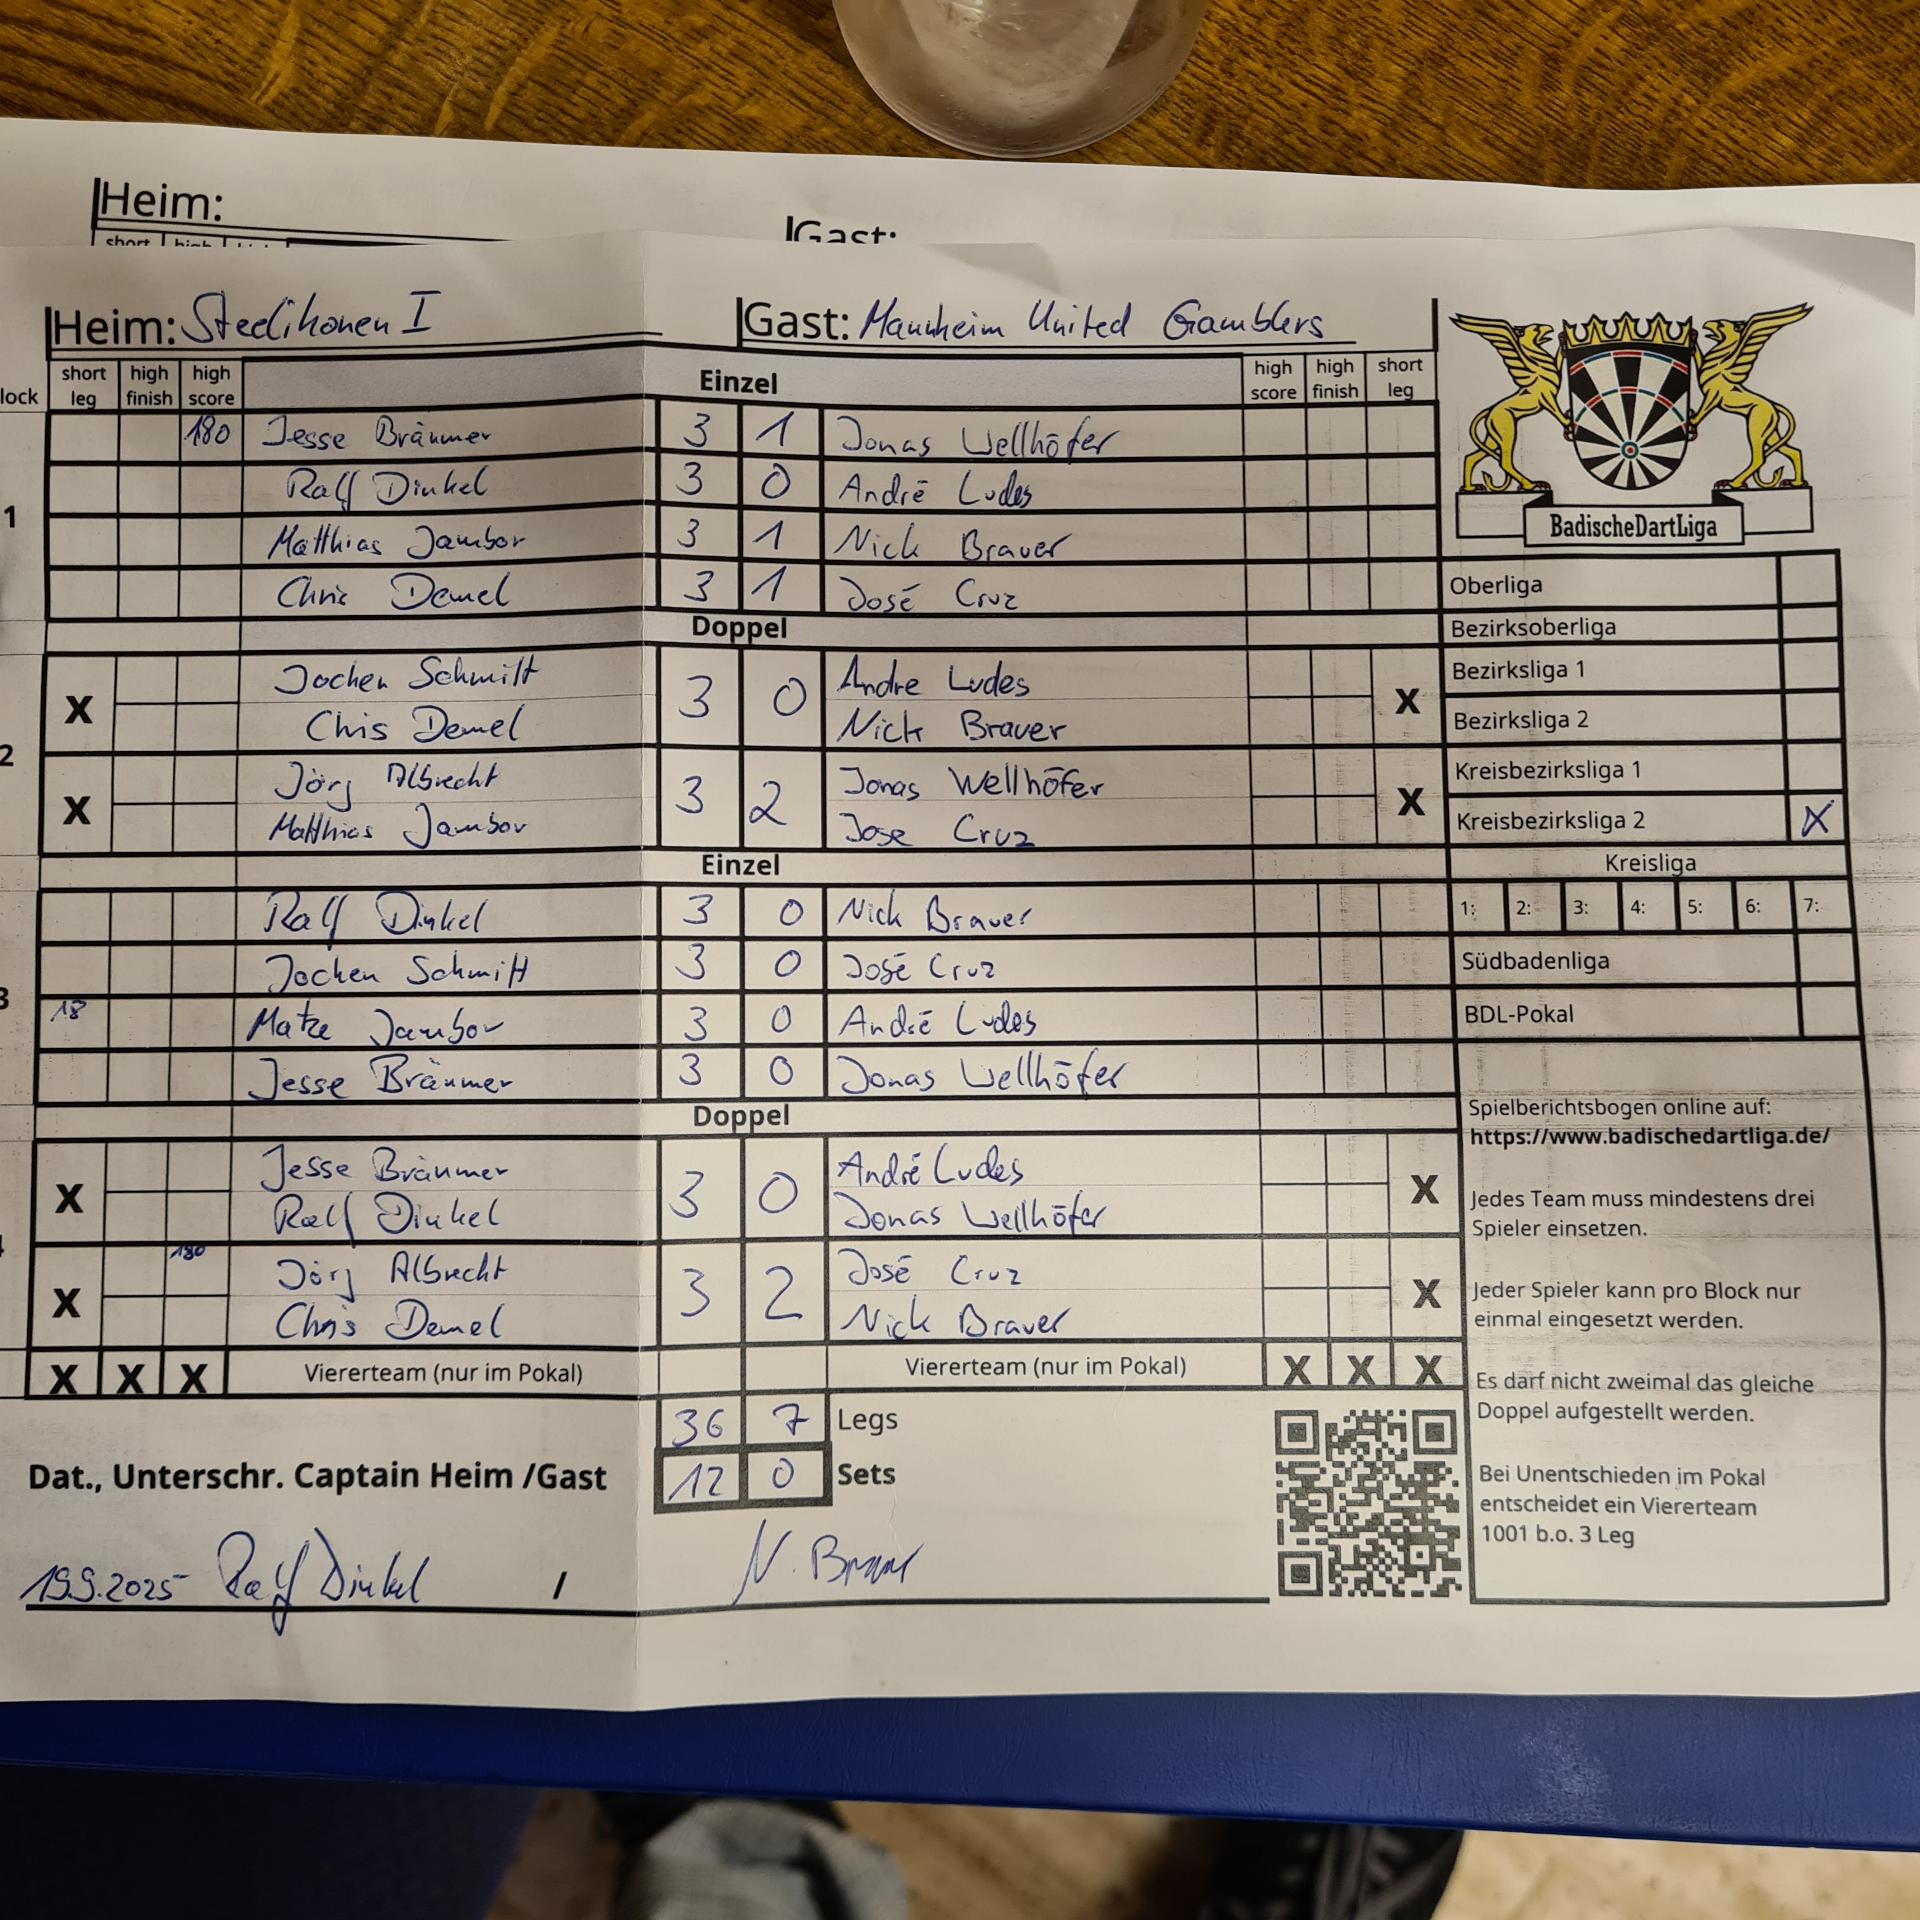 Heim:
Gast:
short high
Heim: Steelikonen I Gast: Mannheim United Gamblers
lock short leg high finish high score Einzel high score high finish short leg
1
180 Jesse Bräumer 3 1 Jonas Wellhöfer
Ralf Dinkel 3 0 André Ludes
Matthias Jambor 3 1 Nick Brauer
Chris Demel 3 1 José Cruz
Doppel
2
X Jochen Schmitt 3 0 Andre Ludes X
Chris Demel Nick Brauer
X Jörg Albrecht 3 2 Jonas Wellhöfer X
Matthias Jambor Jose Cruz
Einzel
3
Ralf Dinkel 3 0 Nick Brauer
Jochen Schmitt 3 0 José Cruz
18 Matze Jambor 3 0 André Ludes
Jesse Bräumer 3 0 Jonas Wellhöfer
Doppel
X Jesse Bräumer 3 0 André Ludes X
Ralf Dinkel Jonas Wellhöfer
X 180 Jörg Albrecht 3 2 José Cruz X
Chris Demel Nick Brauer
X X X Viererteam (nur im Pokal) Viererteam (nur im Pokal) X X X
36 7 Legs
12 0 Sets
Dat., Unterschr. Captain Heim /Gast
19.9.2025 Ralf Dinkel / N. Brauer
BadischeDartLiga
Oberliga
Bezirksoberliga
Bezirksliga 1
Bezirksliga 2
Kreisbezirksliga 1
Kreisbezirksliga 2 X
Kreisliga
1: 2: 3: 4: 5: 6: 7:
Südbadenliga
BDL-Pokal
Spielberichtsbogen online auf:
https://www.badischedartliga.de/
Jedes Team muss mindestens drei
Spieler einsetzen.
Jeder Spieler kann pro Block nur
einmal eingesetzt werden.
Es darf nicht zweimal das gleiche
Doppel aufgestellt werden.
Bei Unentschieden im Pokal
entscheidet ein Viererteam
1001 b.o. 3 Leg